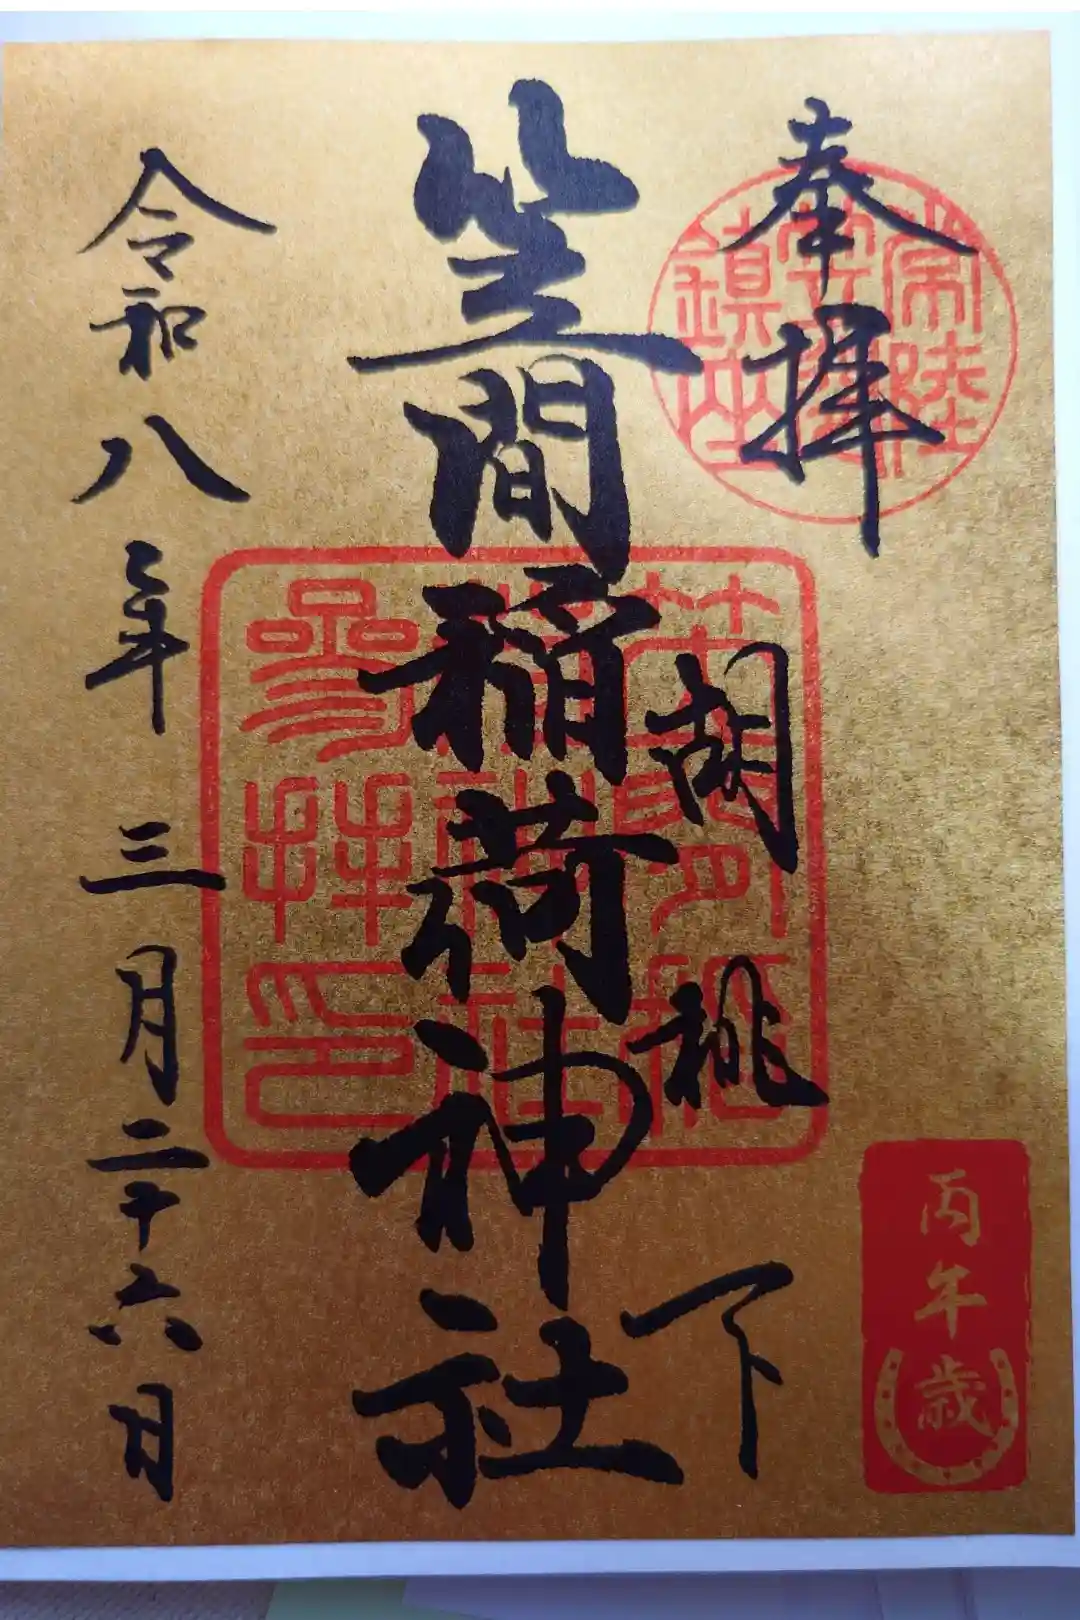 奉拝
常陸
鎮座
胡桃下
笠間稲荷神社
參拜印
令和八年三月二十六日
丙午歳